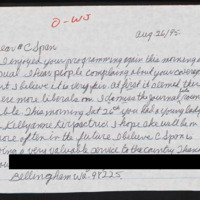 O-WJ
Aug 26/95.
Dear C Span
I enjoyed your programming again this morning as
usual. I hear people complaining about your coverage
but I believe it is very fair. At first it seemed there
were more liberals on. I do enjoy the journal, round
table. This morning Sat 26th you had a young lady
Kellyanne Fitzpatrick I hope she will be on
more often in the future. I believe C Span is
doing a very valuable service to the country. Thank
you
Bellingham Wa. 98225